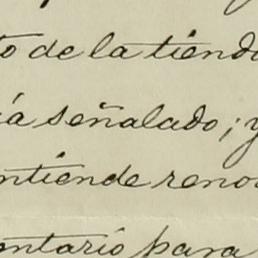 to de la tienda
ía señalado; y
entiende reno
entario para